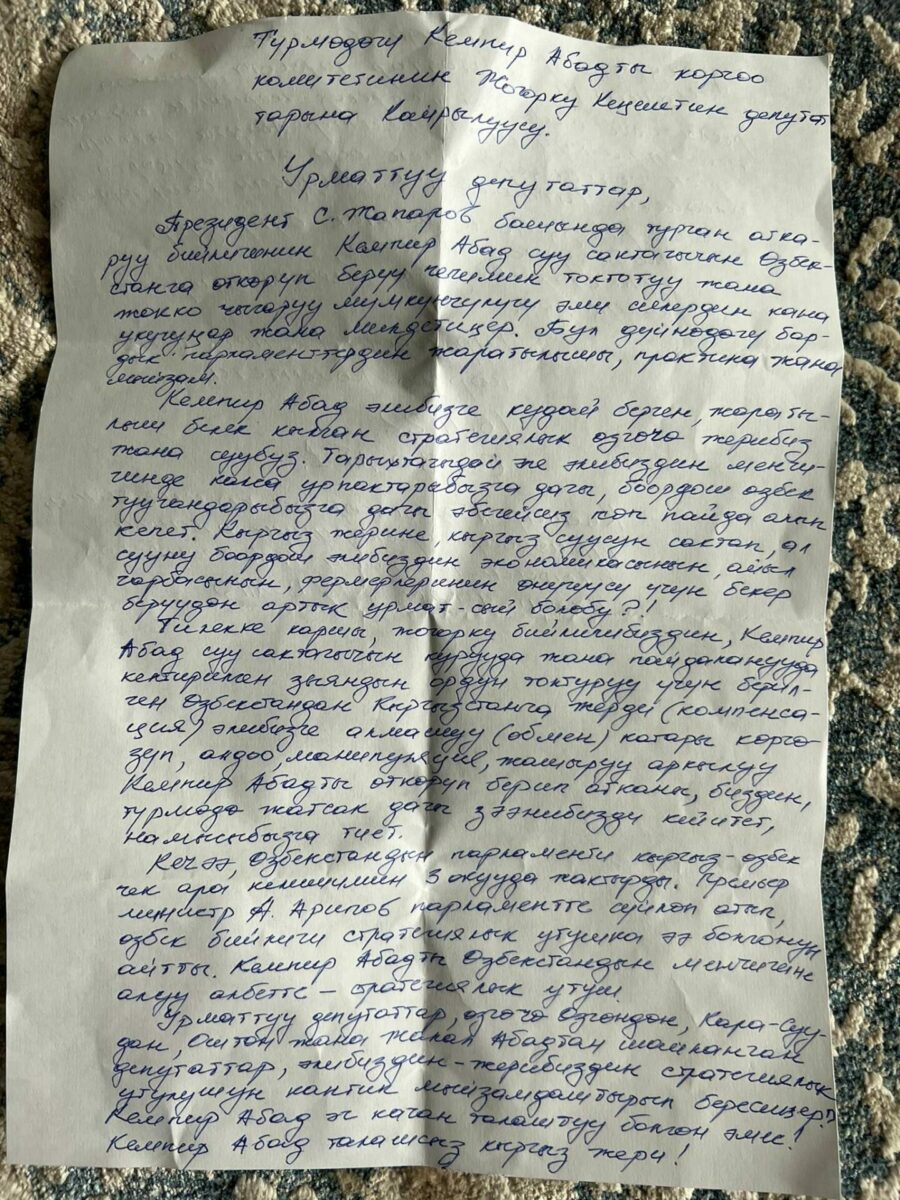 Түрмөдөгү Кемпир Абадты коргоо
комитетинин Жогорку Кеңештин депутат
тарына Кайрылуусу.
Урматтуу депутаттар,
Президент С. Жапаров башында турган атка-
руу бийлигинин Кемпир Абад суу сактагычын Өзбек-
станга өткөрүп берүү чечимин токтотуу жана
жокко чыгаруу мүмкүнчүлүгү эми силердин гана
укугуңар жана милдетиңер. Бул дүйнөдөгү бар-
дык парламенттердин жаратылышы, практика жана
мыйзам.
Кемпир Абад элибизге кудай берген, жараты-
лыш белек кылган стратегиялык өзгөчө жерибиз
жана суубуз. Тарыхтагыдай эле элибиздин менчи-
гинде кала урпактарыбызга дагы, боордош өзбек
туугандарыбызга дагы эбегейсиз көп пайда алып
келет. Кыргыз жерине кыргыз суусун сактап, ал
сууну боордош элибиздин экономикасынын, айыл
чарбасынын, фермерлеринин өнүгүүсү үчүн бекер
берүүдөн артык урмат-сый болобу?!
Тилекке каршы, жогорку бийлигибиздин, Кемпир
Абад суу сактагычын курууда жана пайдаланууда
келтирилген зыяндын ордун толтуруу үчүн берил-
ген Өзбекстандан Кыргызстанга жерди (компенса-
ция) элибизге алмашуу (обмен) катары көргө-
зүп, алдоо, манипуляция, жашыруу аркылуу
Кемпир Абадты өткөрүп берип атканы, биздин,
түрмөдө жатсак дагы зээнибизди кейитет,
намысыбызга тиет.
Кечээ, Өзбекстандын парламенти кыргыз-өзбек
чек ара келишимин 3 окууда жактырды. Премьер
министр А. Арипов парламентте сүйлөп атып,
өзбек бийлиги стратегиялык утушка ээ болгонун
айтты. Кемпир Абадты Өзбекстандын менчигине
алуу албетте - стратегиялык утуш.
Урматтуу депутаттар, өзгөчө Өзгөндөн, Кара-Суу-
дан, Оштон жана Жалал Абадтан шайланган
депутаттар, элибиздин-жерибиздин стратегиялык
утулушун кантип мыйзамдаштырып бересиңер?!
Кемпир Абад эч качан талаштуу болгон эмес!
Кемпир Абад талашсыз кыргыз жери!